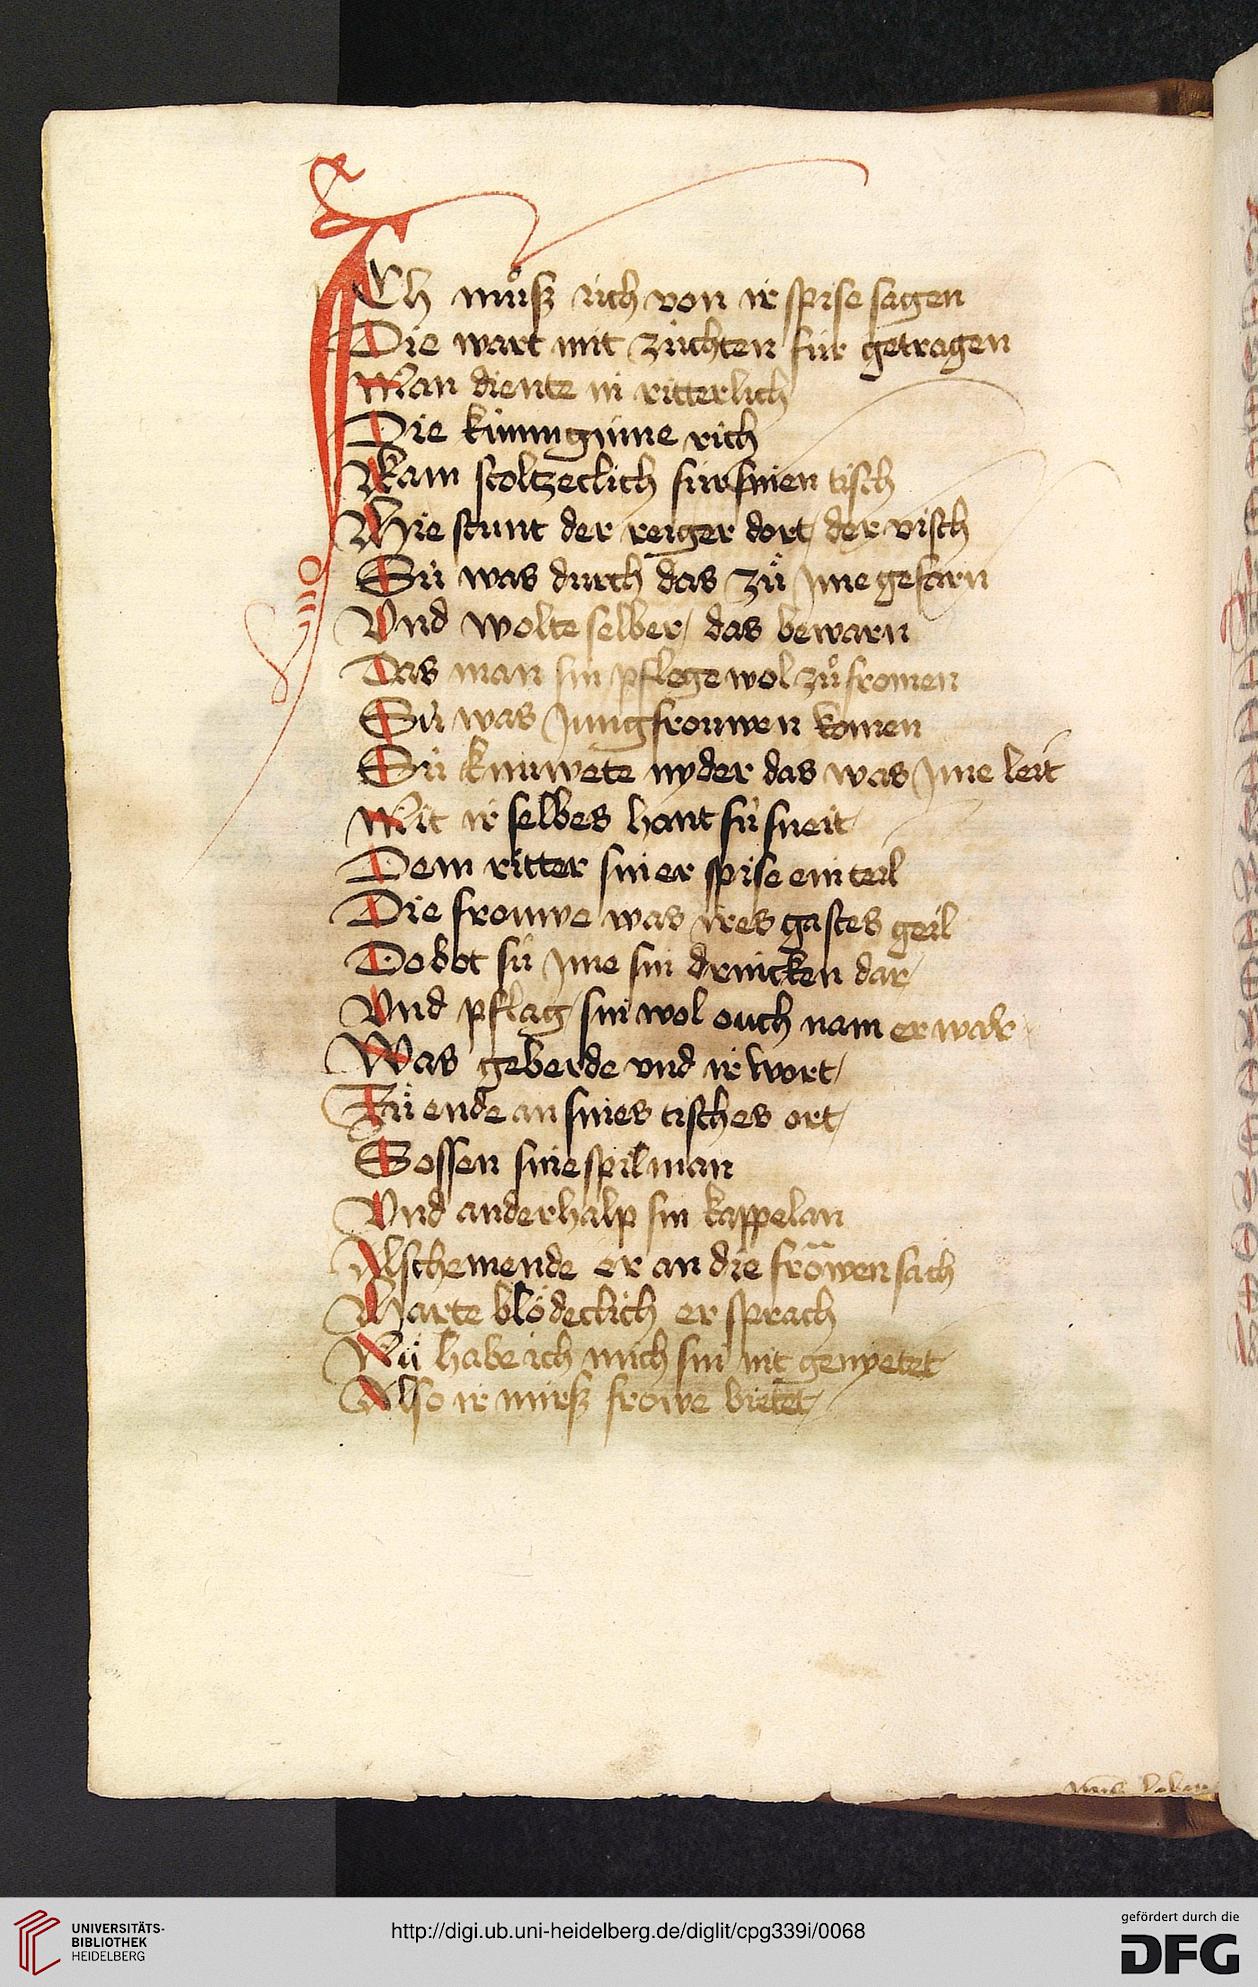 ICh můsz uͤch von ir spise sagen
Die wart mit zuͤchten für getragen
Man diente in ritterlich
Die kúnnginne rich
Kam stoltzeclich fúr sinen tisch
Hie stunt der reiger dort / der visch
Sú was durch das zů Jme gefarn
Vnd wolte selber / das bewarn
Das man sin pflege wol zů fromen
Sú was Jungfrouwen komen
Sú knuwete nyder das was Jme leit
Mit ir selbes hant sú sneit
Dem ritter siner spise ein teil
Die frouwe was ires gastes geil
Do bot sú Jme sin drincken dar /
Vnd pflag sin wol ouch nam er war
Was geberde vnd ir wort /
Zů ende an sines tisches ort /
Sossen sine spilman
Vnd anderhalp sin kappelan
Al schemende er an die frǒwen sach
Harte blödeclich er sprach
Nů habe ich mich sin nit genyetet
Also ir mirsz frowe bietet /
UNIVERSITÄTS-
BIBLIOTHEK
HEIDELBERG
http://digi.ub.uni-heidelberg.de/diglit/cpg339i/0068
gefördert durch die
DFG